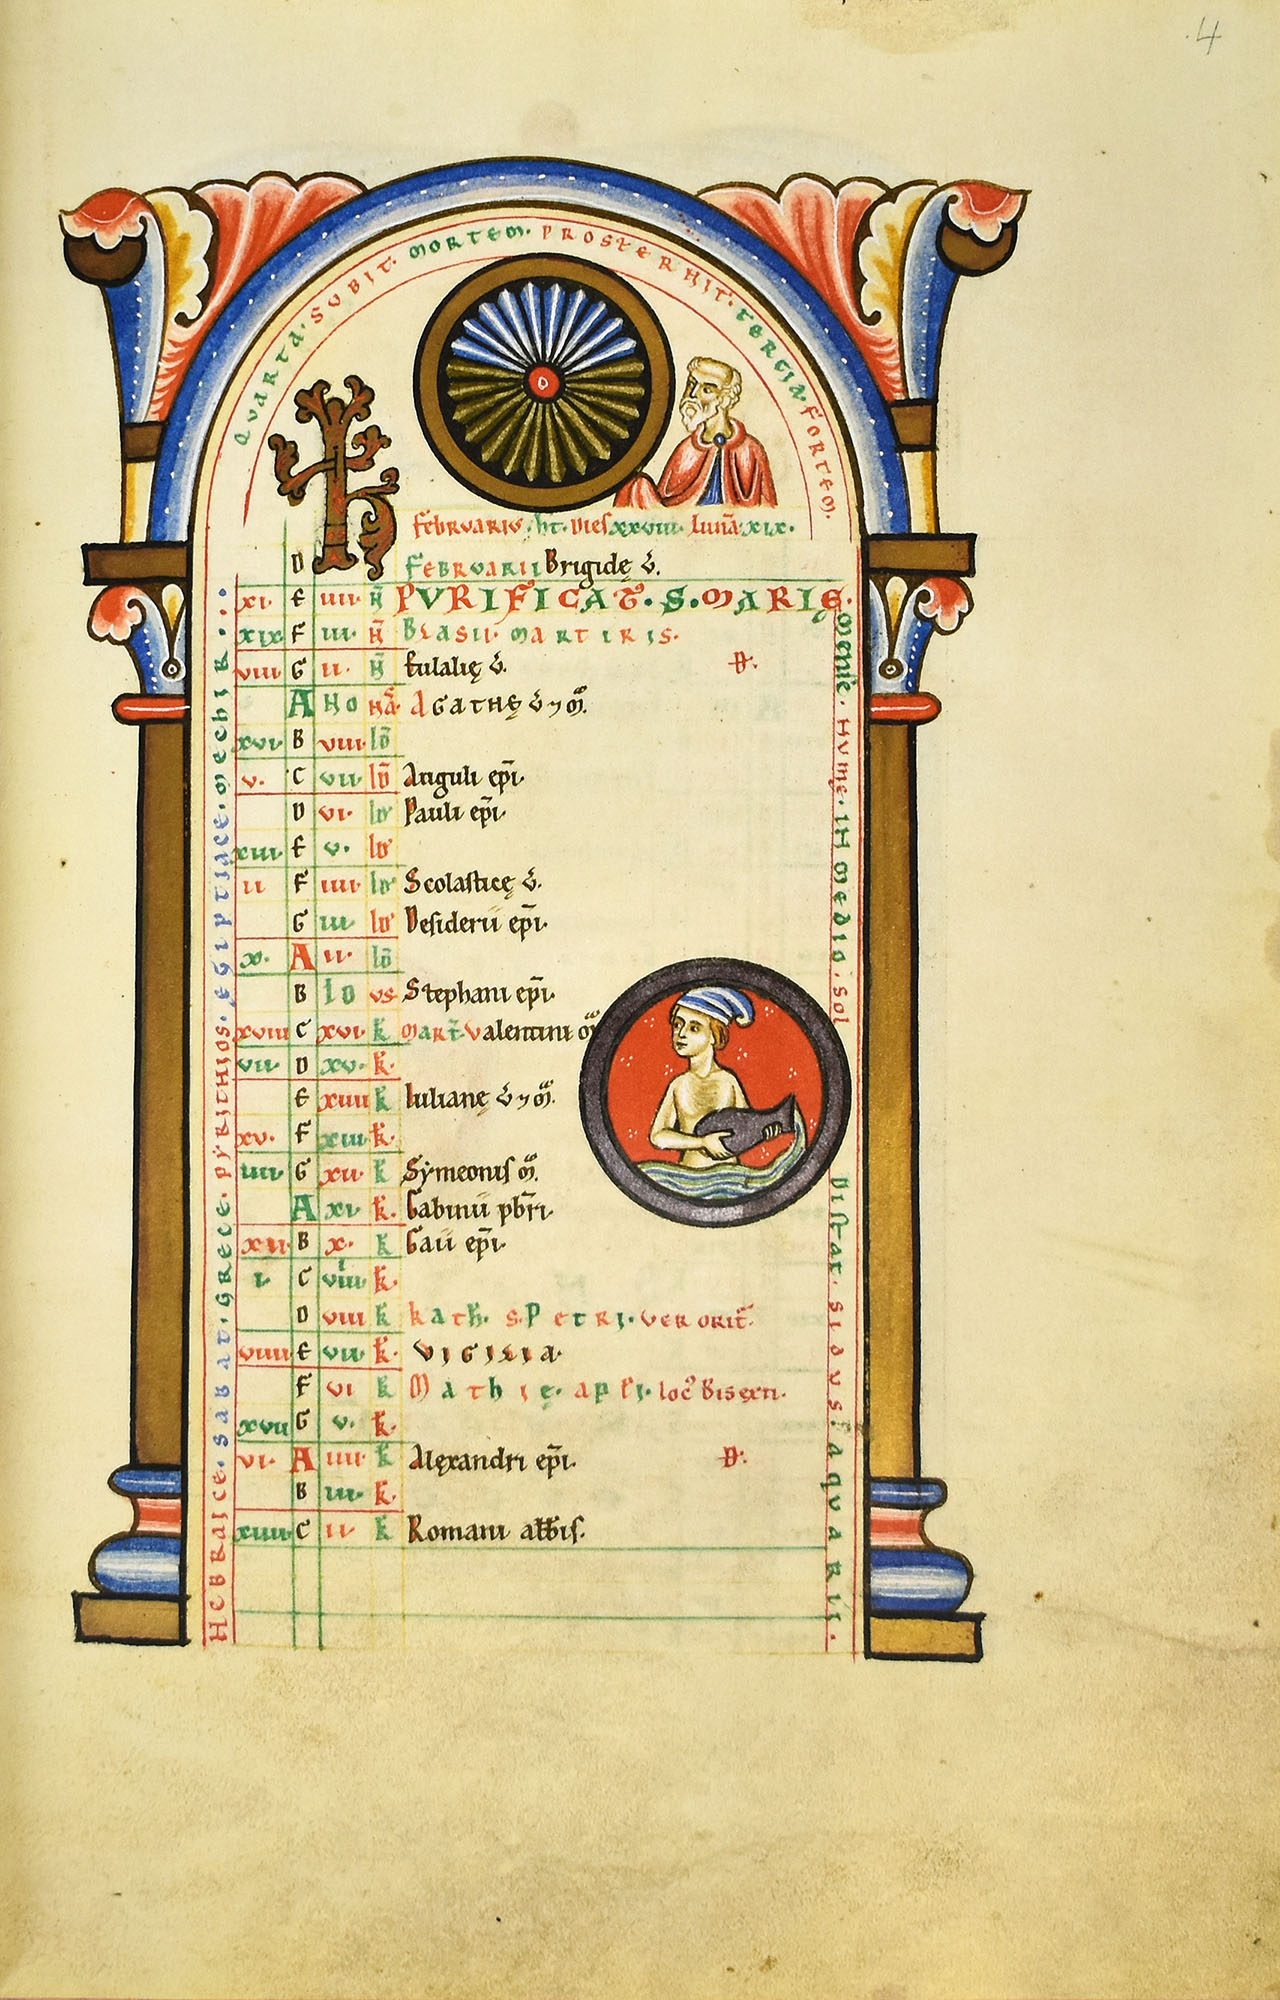 4
QVARTA · SUBIT · MORTEM · PROSTERNIT · TERTIA · FORTEM ·
KL
Februariu. ht. dies xxviii. luna xix.
D Februarii Brigidę v̄.
xi. E iiii. N̄ PVRIFICAT̄. S. MARIĘ.
xix F iii. N̄ Blasii. martiris.
viii G ii. N̄ Eulalię v̄. D.
A NO NAS̄ Agathę v̄ ⁊ m̄.
xvi. B viii. id̄
v. C vii. id̄ Anguli ep̄i.
D vi. id̄ Pauli ep̄i.
xiii. E v. id̄
ii F iiii. id̄ Scolasticę v̄.
G iii. id̄ Desiderii ep̄i.
x. A ii. id̄
B ID VS Stephani ep̄i.
xviii C xvi. k̄ mart̄. Valentini m̄
vii. D xv. k̄.
E xiiii k̄ Iulianę v̄ ⁊ m̄.
xv. F xiii. k̄.
iiii. G xii. k̄ Sẏmeonis m̄.
A xi. k̄. Gabinii pb̄ri.
xii. B x. k̄ Gaii ep̄i.
i. C viiii. k̄.
D viii k̄ kath. s. Petri. ver orit̄.
viiii. E vii. k̄. Vigilia.
F vi k̄ Mathię. apl̄i. loc̄ bisexti.
xvii G v. k̄.
vi. A iiii. k̄ Alexandri ep̄i. D.
B iii. k̄.
xiiii. C ii k̄ Romani abb̄is.
Hebraice. sabat. Grece. pẏrithios. Egiptiace. mechir.
Mense. Numę. in medio. sol
Distat. sidus. aquarii.